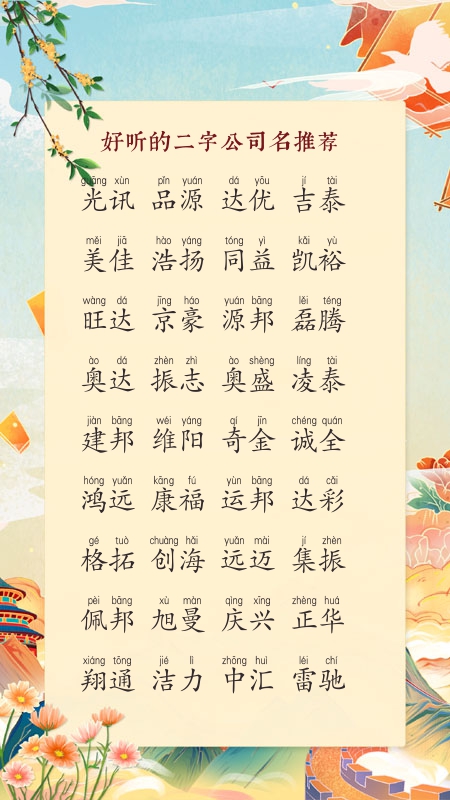 好听的二字公司名推荐
guāng xùn pǐn yuán dá yōu jí tài
光讯 品源 达优 吉泰
měi jiā hào yáng tóng yì kǎi yù
美佳 浩扬 同益 凯裕
wàng dá jīng háo yuán bāng lěi téng
旺达 京豪 源邦 磊腾
ào dá zhèn zhì ào shèng líng tài
奥达 振志 奥盛 凌泰
jiàn bāng wéi yáng qí jīn chéng quán
建邦 维阳 奇金 诚全
hóng yuǎn kāng fú yùn bāng dá cǎi
鸿远 康福 运邦 达彩
gé tuò chuàng hǎi yuǎn mài jí zhèn
格拓 创海 远迈 集振
pèi bāng xù màn qìng xīng zhèng huá
佩邦 旭曼 庆兴 正华
xiáng tōng jié lì zhōng huì léi chí
翔通 洁力 中汇 雷驰